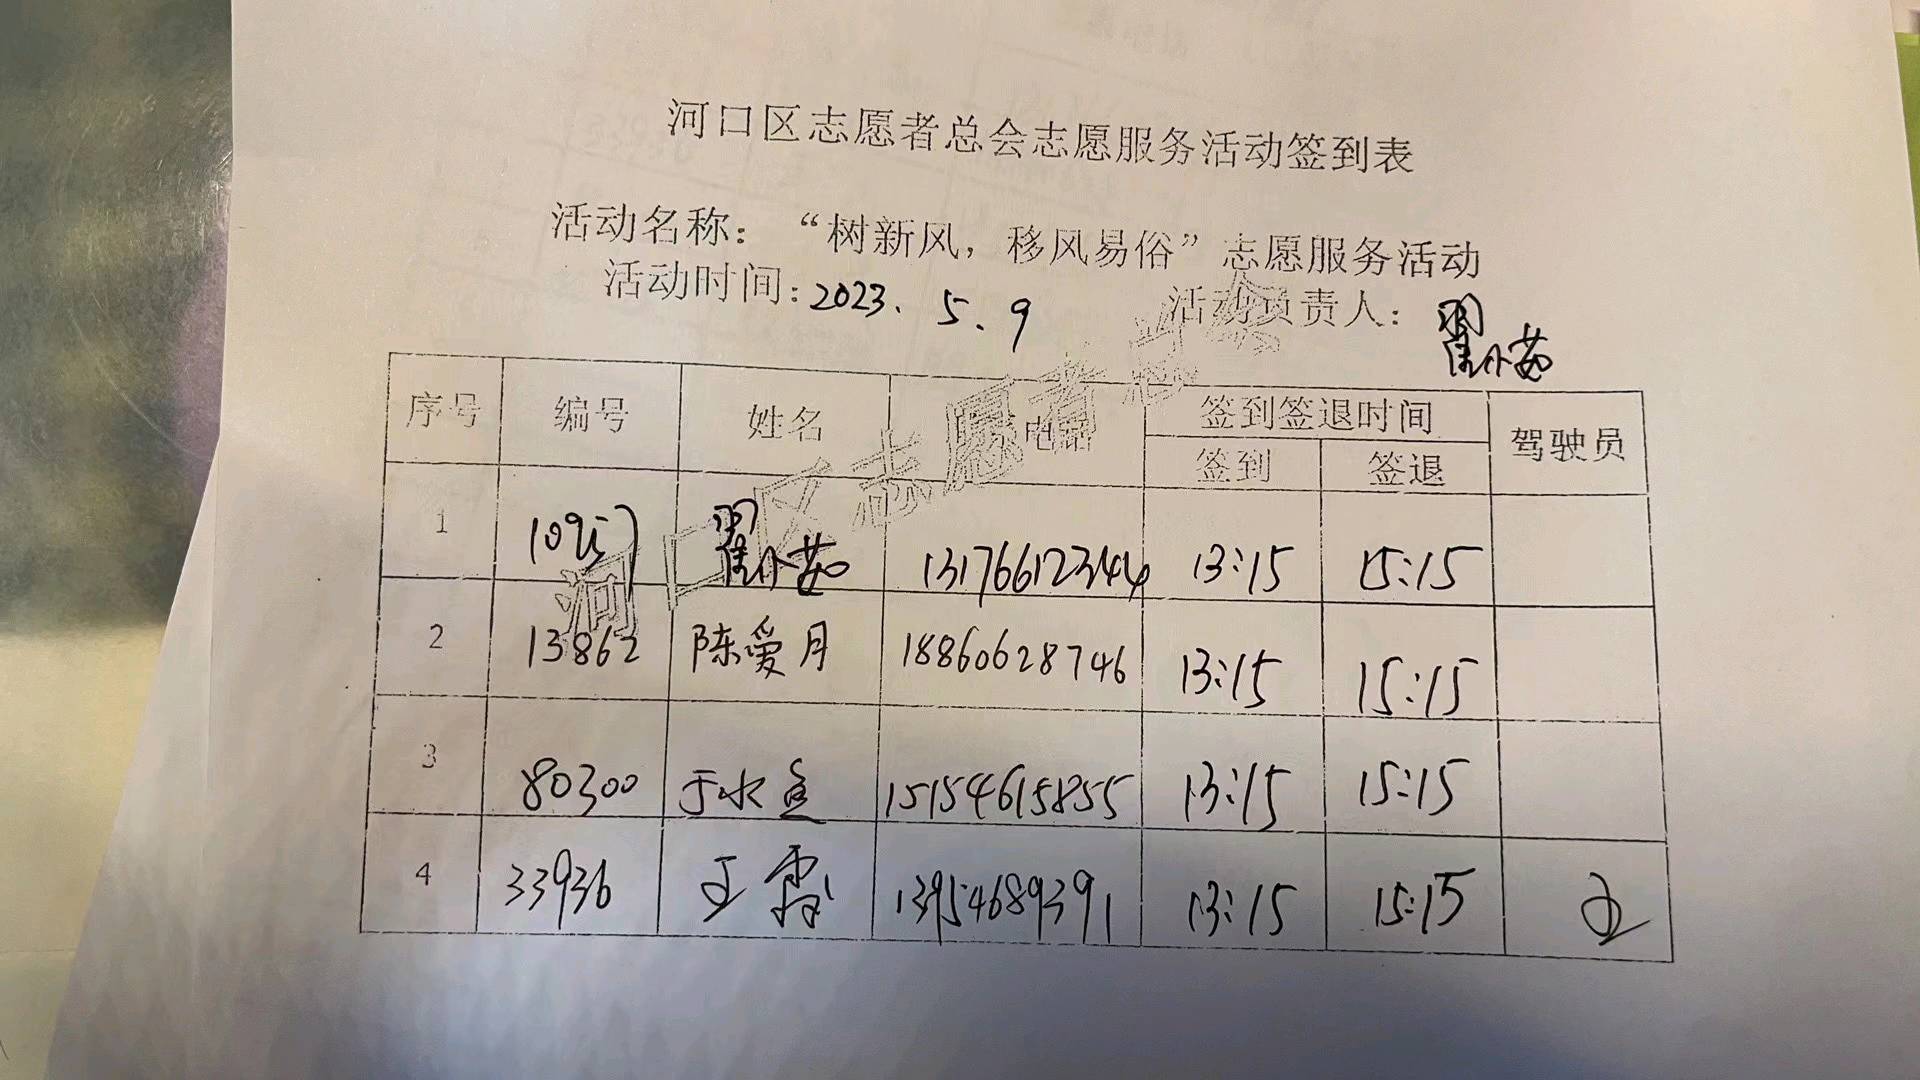 河口区志愿者总会志愿服务活动签到表
活动名称：“树新风，移风易俗”志愿服务活动
活动时间：2023.5.9 活动负责人：翟小茹
序号 编号 姓名 电话 签到签退时间 驾驶员
签到 签退
1 10957 翟小茹 13176612344 13:15 15:15
2 13862 陈爱月 18860628746 13:15 15:15
3 80300 于水 15154615855 13:15 15:15
4 33936 王霞 13954689391 13:15 15:15
河口区志愿者总会